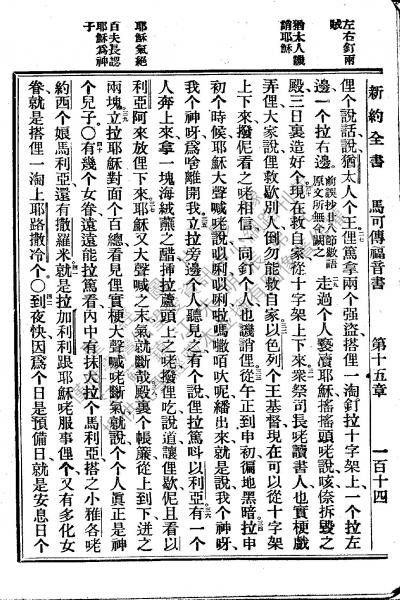 新約全書 馬可傳福音書 第十五章 一百十四
左右釘兩
賊
猶太人譏
誚耶穌
耶穌氣絕
百夫長認
耶穌爲神
子
俚個說話說猶太人个王俚篤拿兩個强盜搭俚一淘釘拉十字架上一個拉左
邊一個拉右邊前誤抄廿八節數語原文所無今闕之走過個人褻瀆耶穌搖搖頭咾說咳倷拆毀之
殿三日裏造好个現在救自家從十字架上下來衆祭司長咾讀書人也實梗戲
弄俚大家說俚救歇別人倒勿能救自家以色列個王基督現在可以從十字架
上下來撥伲看之咾相信一同釘个人也譏誚俚從午正到申初徧地黑暗拉申
初個時候耶穌大聲喊咾說繙出來就是說我个神呀
我个神呀爲啥離開我立拉旁邊個人聽見之有个說俚拉篤呌以利亞有一个
人奔上來拿一塊海絨蘸之醋揷拉蘆頭上之咾撥俚吃說道讓俚歇伲且看以
利亞阿來放俚下來耶穌又大聲喊之末氣就斷哉殿裏个帳簾從上到下迸之
兩塊立拉耶穌對面個百總看見俚實梗大聲喊咾斷氣就說个个人眞正是神
个兒子〇有幾个女眷遠遠能拉篤看內中有抹大拉个馬利亞搭之小雅各咾
約西個娘馬利亞還有撒羅米就是拉加利利跟耶穌咾服事俚个又有多化女
眷就是搭俚一淘上耶路撒冷个〇到夜快因爲个日是預備日就是安息日个